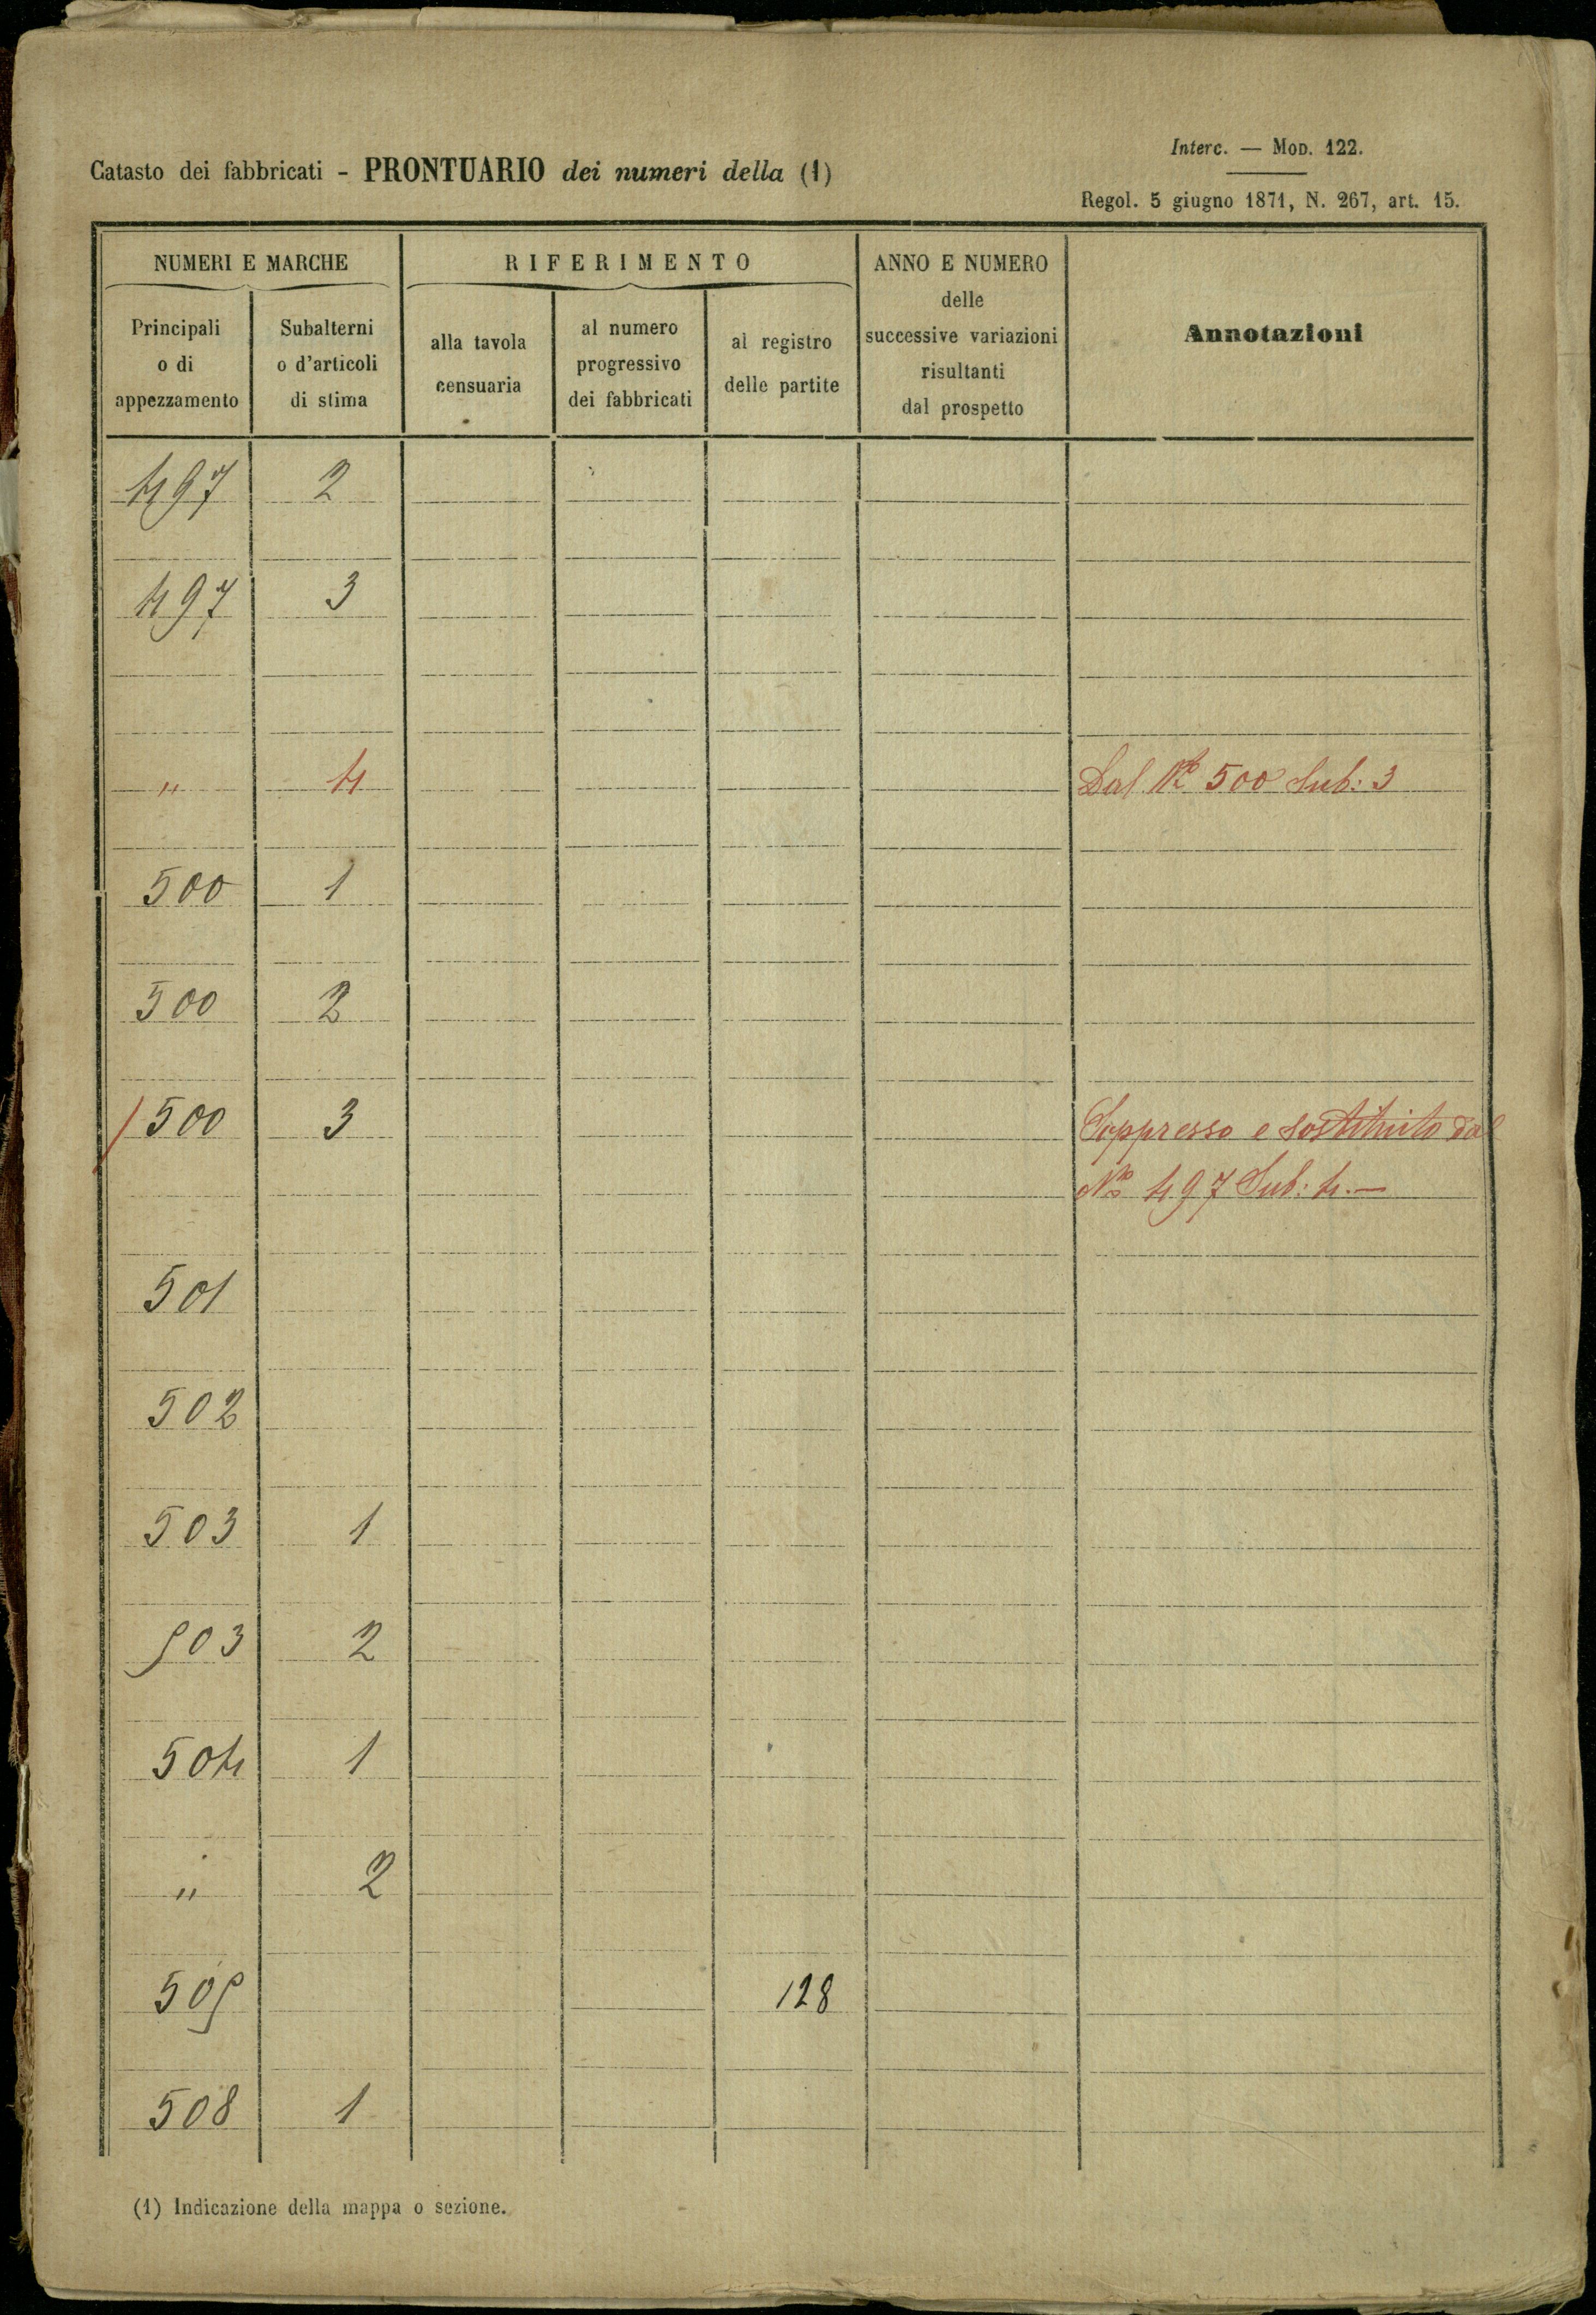 Interc. — Mod. 122.
Catasto dei fabbricati - PRONTUARIO dei numeri della (1)
Regol. 5 giugno 1871, N. 267, art. 15.
NUMERI E MARCHE
Principali
o di
appezzamento
Subalterni
o d'articoli
di stima
RIFERIMENTO
alla tavola
censuaria
al numero
progressivo
dei fabbricati
al registro
delle partite
ANNO E NUMERO
delle
successive variazioni
risultanti
dal prospetto
Annotazioni
497 2
497 3
" 4 Dal No 500 Sub: 3
500 1
500 2
500 3 Soppresso e sostituito dal
No 497 Sub: 4.—
501
502
503 1
503 2
504 1
" 2
505 128
508 1
(1) Indicazione della mappa o sezione.